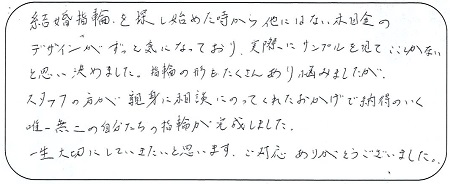 結婚指輪を探し始めた時から他にはない木目金の
デザインがずっと気になっており、実際にサンプルを見てここしかない
と思い決めました。指輪の形もたくさんあり悩みましたが、
スタッフの方が親身に相談にのってくれたおかげで納得のいく
唯一無二の自分たちの指輪が完成しました。
一生大切にしていきたいと思います。ご対応ありがとうございました。